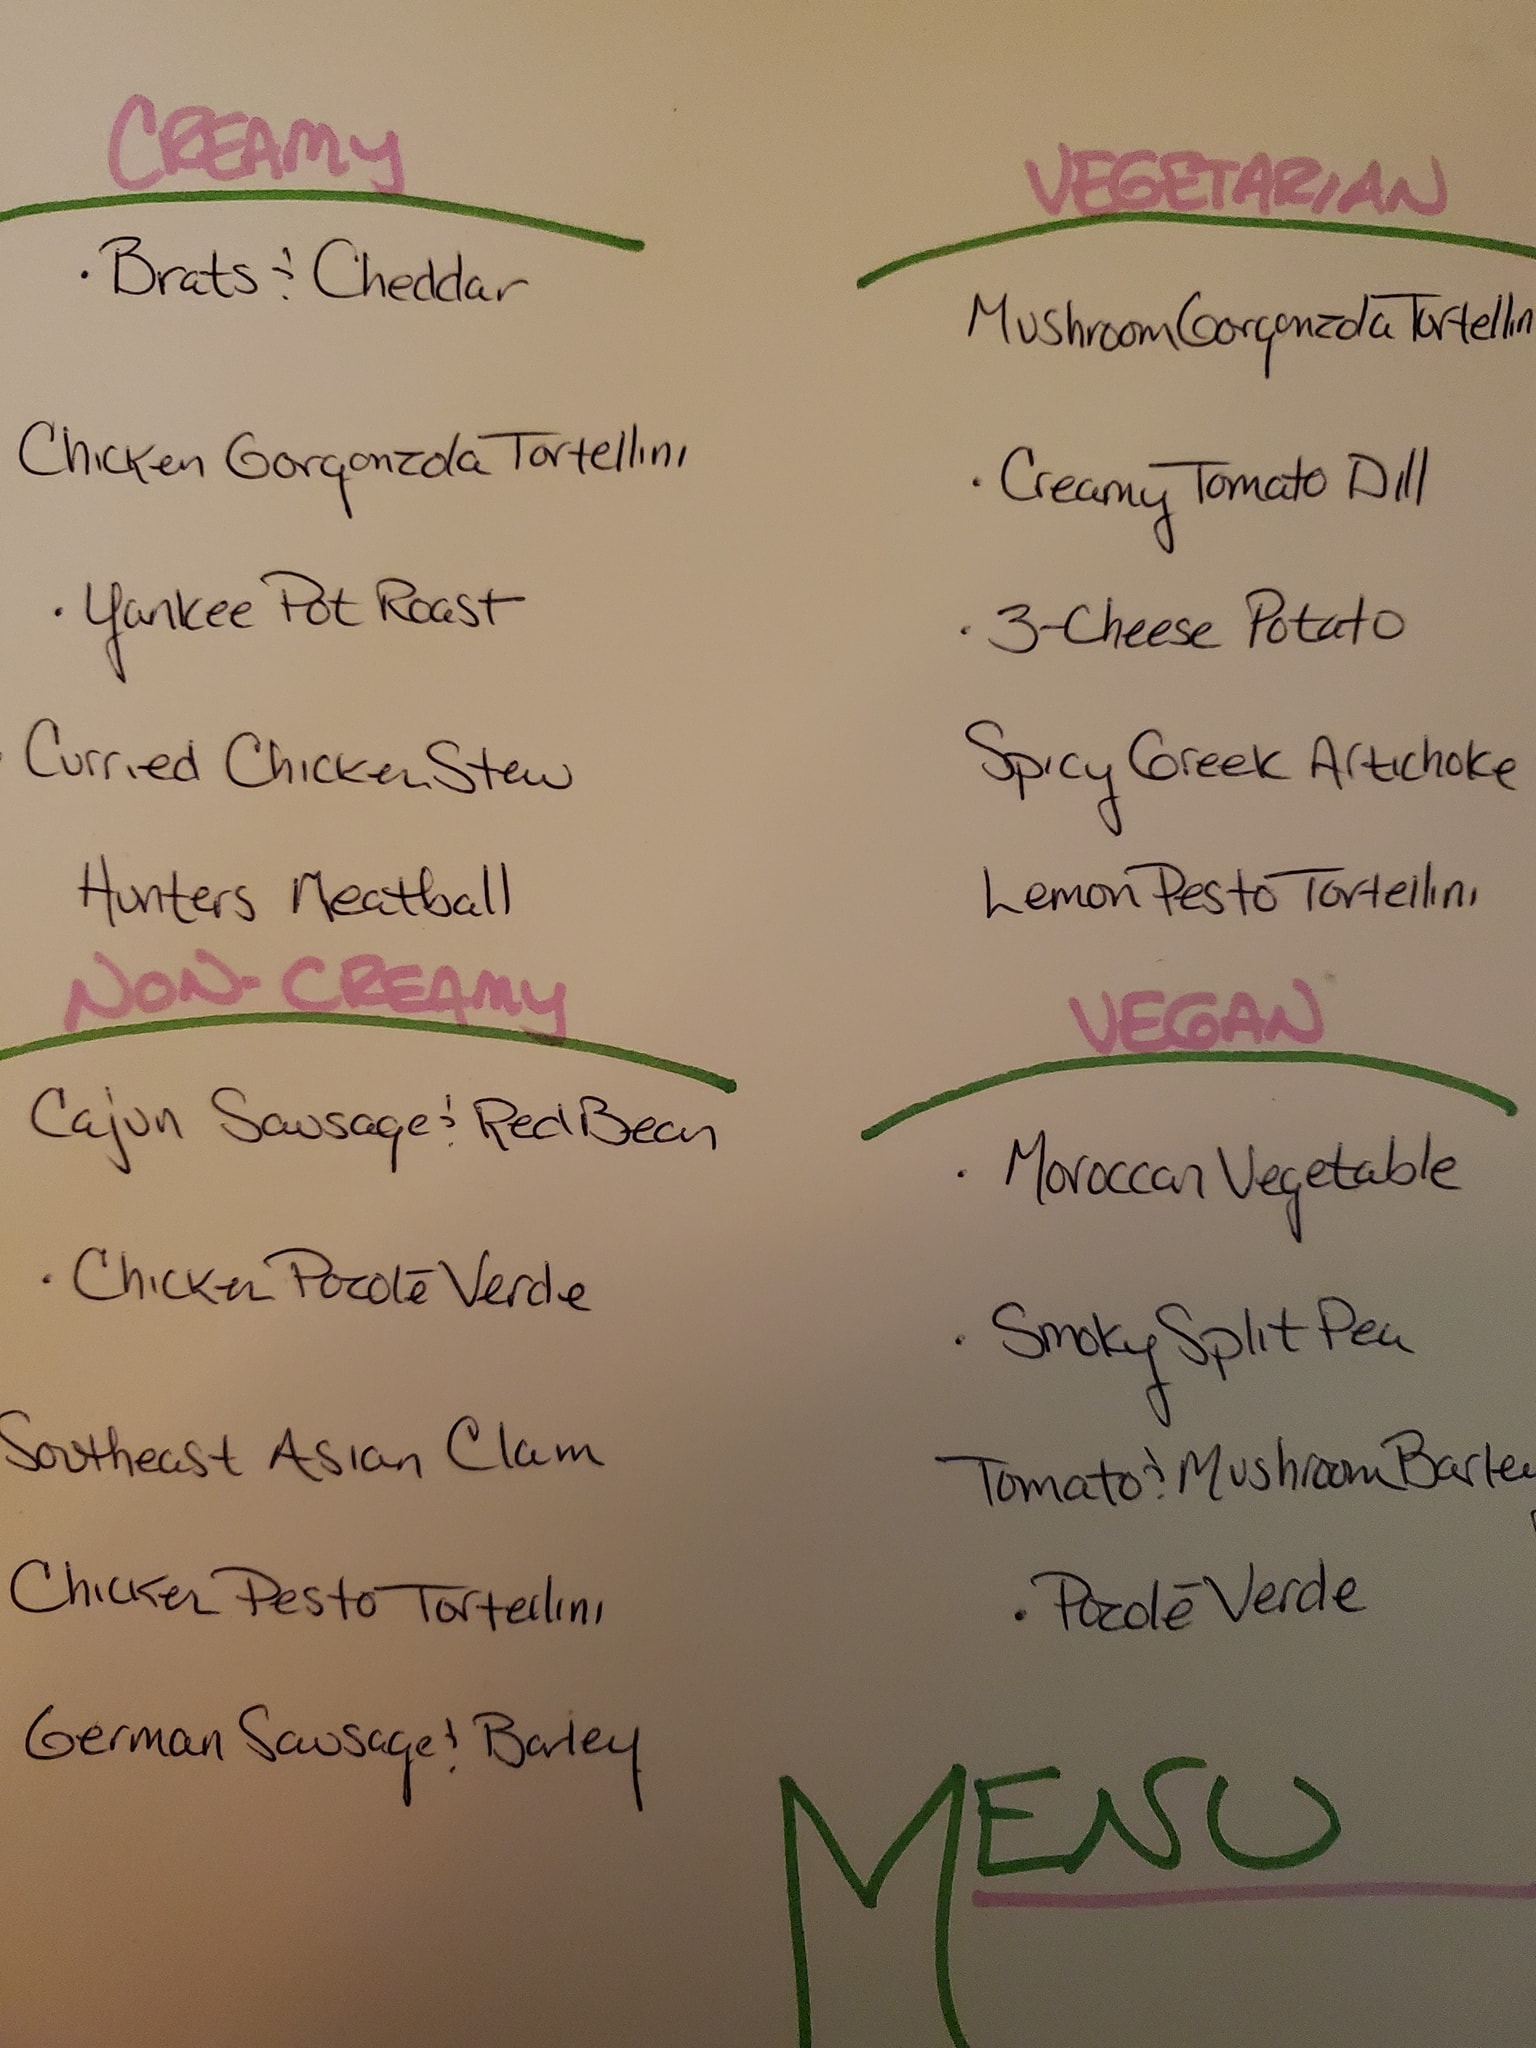 CREAMY
· Brats & Cheddar
Chicken Gorgonzola Tortellini
· Yankee Pot Roast
· Curried Chicken Stew
Hunters Meatball
NON-CREAMY
Cajun Sausage & Red Bean
· Chicken Pozolē Verde
Southeast Asian Clam
Chicken Pesto Tortellini
German Sausage & Barley
VEGETARIAN
Mushroom Gorgonzola Tortellin
· Creamy Tomato Dill
· 3-Cheese Potato
Spicy Greek Artichoke
Lemon Pesto Tortellini
VEGAN
· Moroccan Vegetable
· Smoky Split Pea
Tomato & Mushroom Barley
· Pozolē Verde
MENU